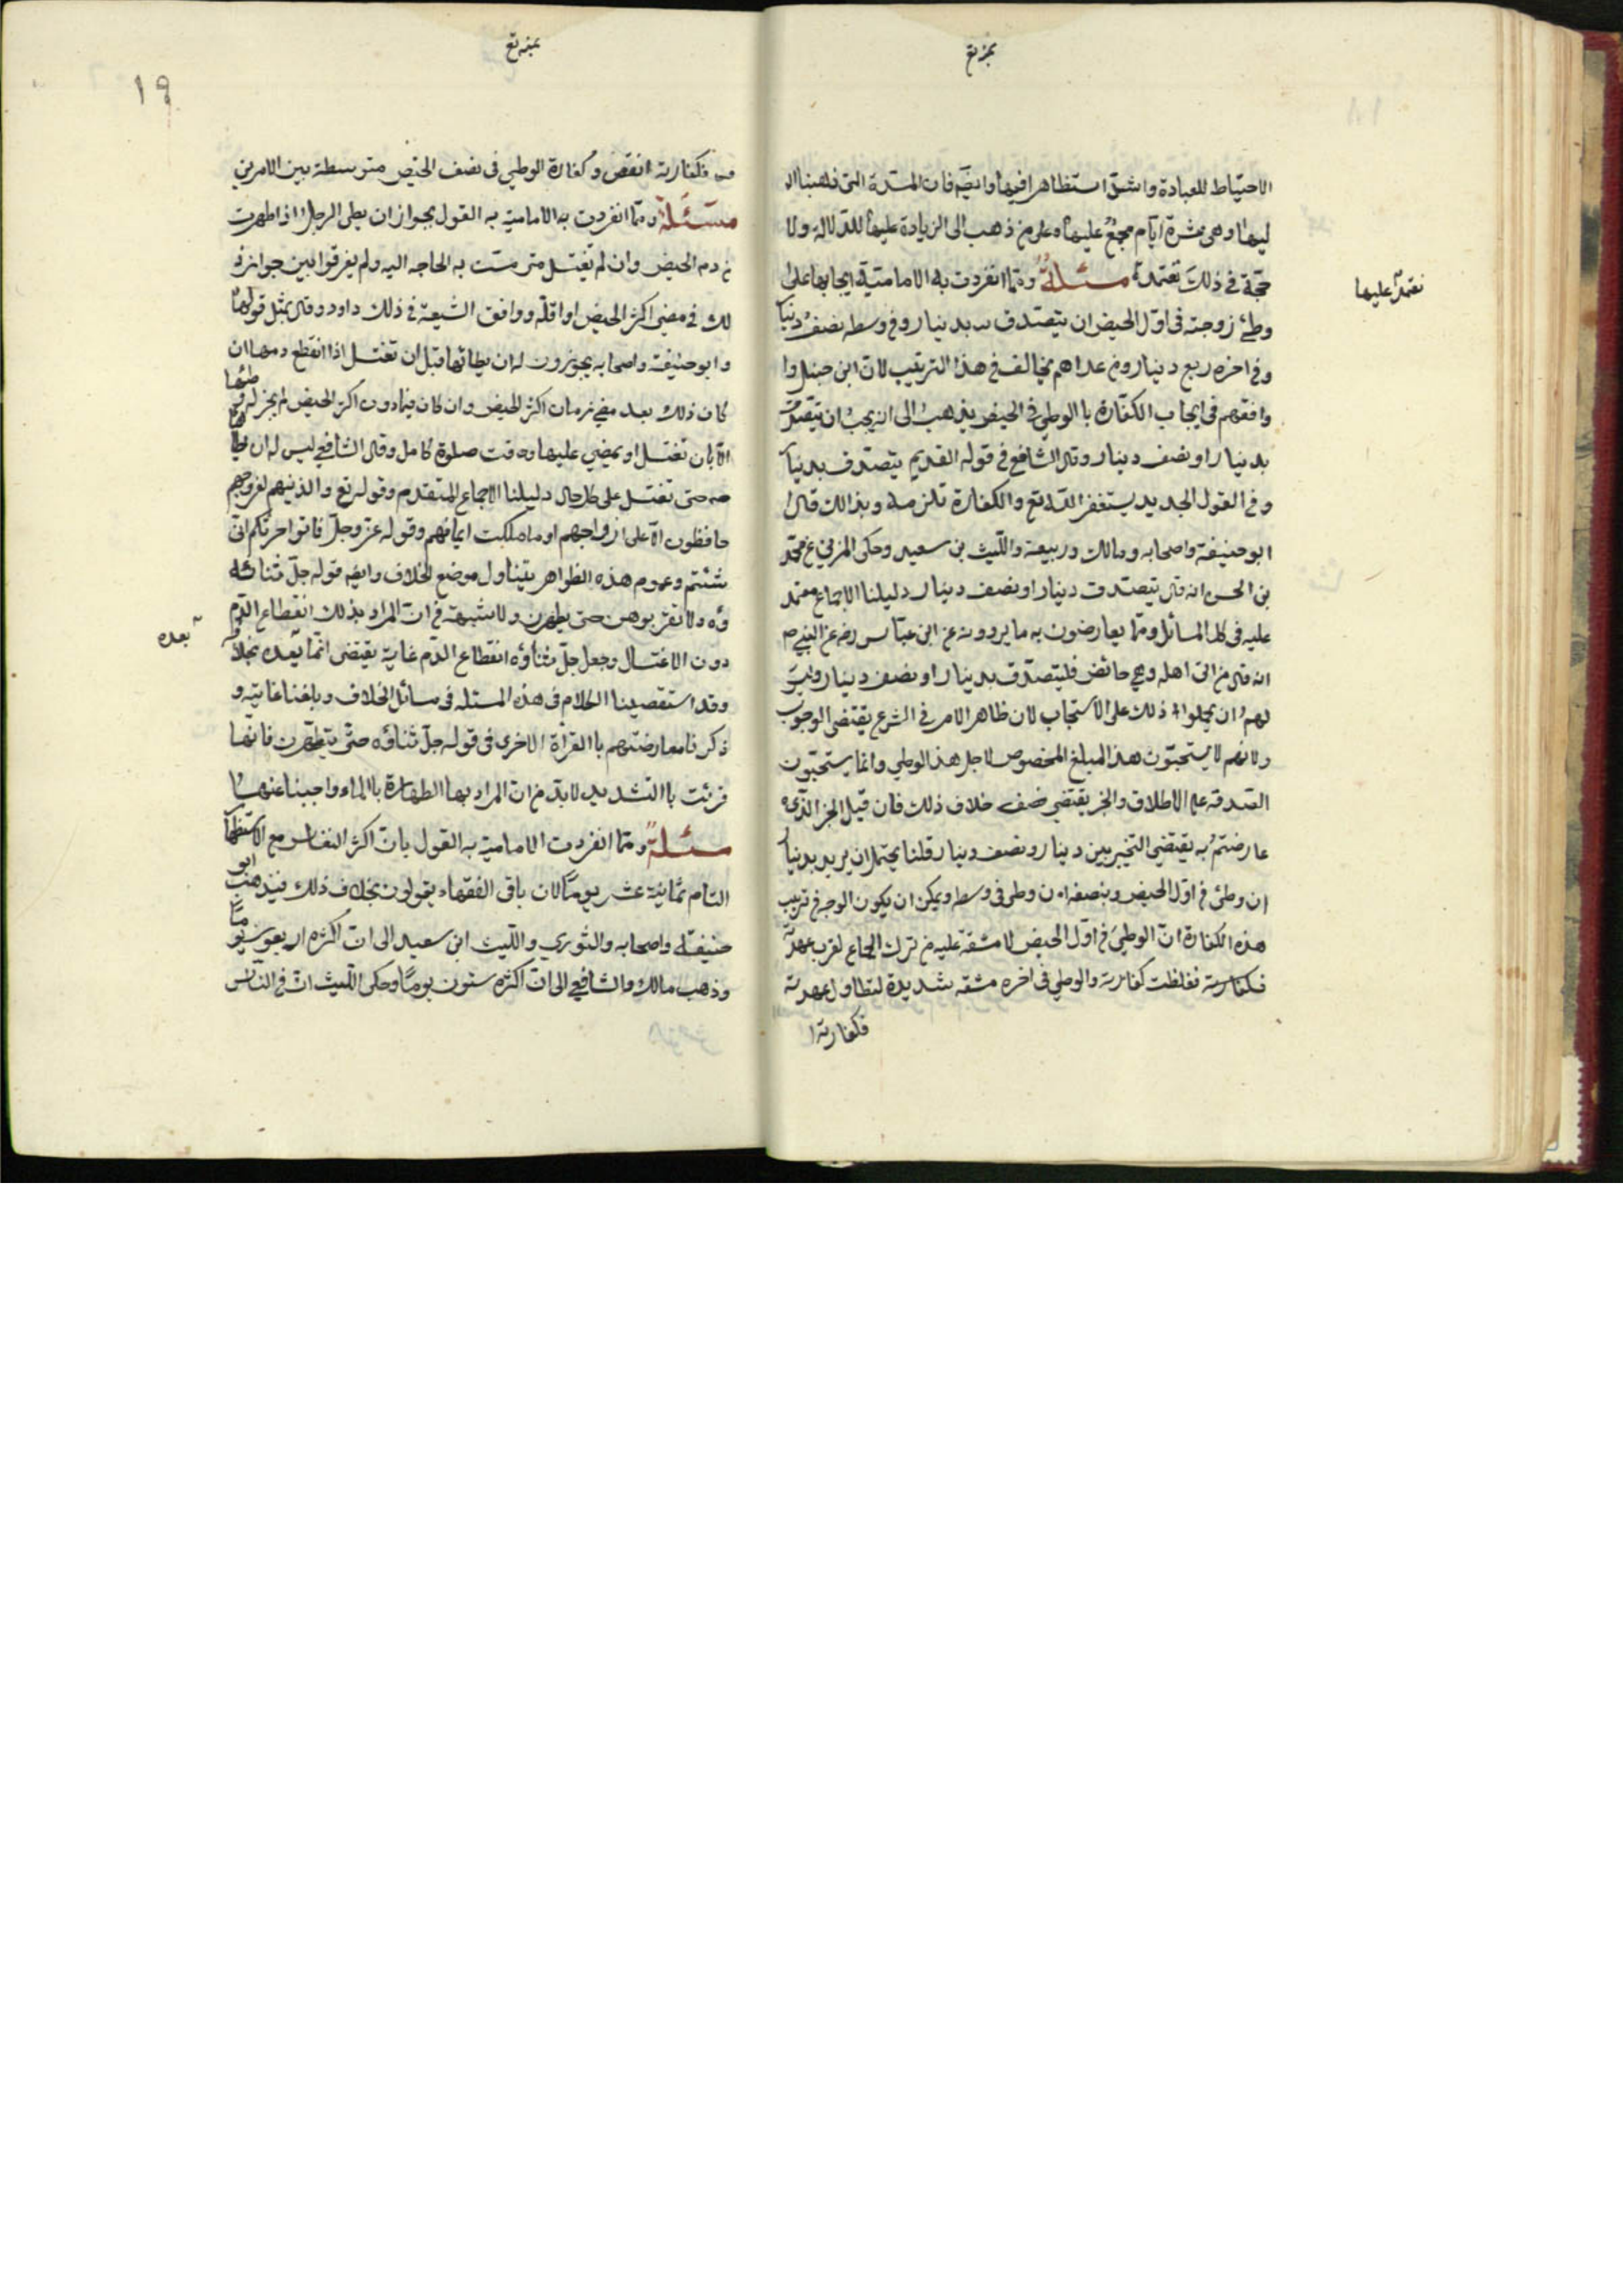 الاحتياط للعبادة واشق استظاهرا فيها وايضم فان المدة التى ذهبنا ا
ليها وهى عشرة ايام مجمع عليها وعلى من ذهب الى الزيادة عليها للدلالة ولا
حجة فى ذلك تعتمد مسئلة ومما انفردت به الامامية ايجابها على
نعتمد عليها
وطئ زوجته فى اول الحيض ان يتصدق بدينار وفى وسطه نصف دينا
وفى اخره ربع دينار ومن عداهم يخالف فى هذا الترتيب لان ابن حنبل وا
وافقهم فى ايجاب الكفارة باالوطى فى الحيض يذهب الى انه يجب ان يتصدق
بدينار او نصف دينار وقال الشافعى فى قوله القديم يتصدق بدينا
وفى القول الجديد يستغفر الله تع والكفارة تلزمه وبذالك قال
ابو حنيفة واصحابه ومالك وربيعة والليث بن سعيد وحكى المزنى عن محمد
بن الحسن انه قال يتصدق دينار او نصف دينار دليلنا الاجماع معتمد
عليه فى كل المسائل ومما يعارضون به ما يروونه عن ابن عباس رضه عن النبى ص
انه قال من اتى اهله وهى حائض فليتصدق بدينار او نصف دينار وليس
لهم ان يحملوا ذلك على الاستحباب لان ظاهر الامر فى الشرع يقتضى الوجوب
ولانهم لا يستحبون هذا المبلغ المخصوص لاجل هذا الوطى وانما يستحبون
الصدقه على الاطلاق والخبر يقتضى خلاف ذلك فان قيل الخبر الذى
عارضتم به يقتضى التخيير بين دينار ونصف دينار قلنا يحتمل ان يريد بدينا
ان وطئ فى اول الحيض وبنصفه ان وطى فى وسطه ويمكن ان يكون الوجه فى ترتيب
هذه الكفارة ان الوطى فى اول الحيض لا مشقة عليه فى ترك الجماع لقرب عهده
فكفارته فغلظت كفارته والوطى فى اخره مشقه شديدة لتطاول عهدته
فكفارته ا
١٩
فكفارته انقص وكفارة الوطى فى نصف الحيض متوسطة بين الامرين
مسئلة ومما انفردت به الامامية به القول بجواز ان يطى الرجل اذا طهرت
من دم الحيض وان لم تغتسل متى مست به الحاجه اليه ولم يفرقوا بين جوازذ
لك فى مضى اكثر الحيض او اقله ووافق الشيعة فى ذلك داود وقال بمثل قولها
وابو حنيفة واصحابه يجوزون له ان يطائها قبل ان تغتسل اذا انقطع دمها ان
كان ذلك بعد مضى زمان اكثر الحيض وان كان فيما دون اكثر الحيض لم يجز له و
طئها
الا بان تغتسل او يمضى عليها وقت صلوة كامل وقال الشافعى ليس له ان
حتى تغتسل على كل حال دليلنا الاجماع المتقدم وقوله تع والذينهم لفروجهم
حافظون الا على ازواجهم او ما ملكت ايمانهم وقوله عز وجل فاتوا حرثكم انى
شئتم وعموم هذه الظواهر يتناول موضع الخلاف وايضم قوله جل ثنائه
ولا تقربوهن حتى يطهرن ولا شبهة فى ان المراد بذلك انقطاع الدم
دون الاغتسال وجعل جل ثناؤه انقطاع الدم غاية يقتضى انما بعده بخلافه
بعده
وقد استقصينا الكلام فى هذه المسئله فى مسائل الخلاف وبلغنا غايته و
ذكرنا معارضتهم باالقراة الاخرى فى قوله جل ثناؤه حتى يتطهرن فانها
قرئت باالتشديد لا بد من ان المراد بها الطهارة باالماء واجبنا عنها
مسئلة ومما انفردت الامامية به القول بان اكثر النفاس مع الاستظها
التام ثمانية عشر يوما لان باقى الفقهاء يقولون بخلاف ذلك فيذهب ابو
حنيفة واصحابه والثورى والليث ابن سعيد الى ان اكثره اربعون يوما
وذهب مالك والشافعى الى ان اكثره ستون يوما وحكى الليث ان فى الناس